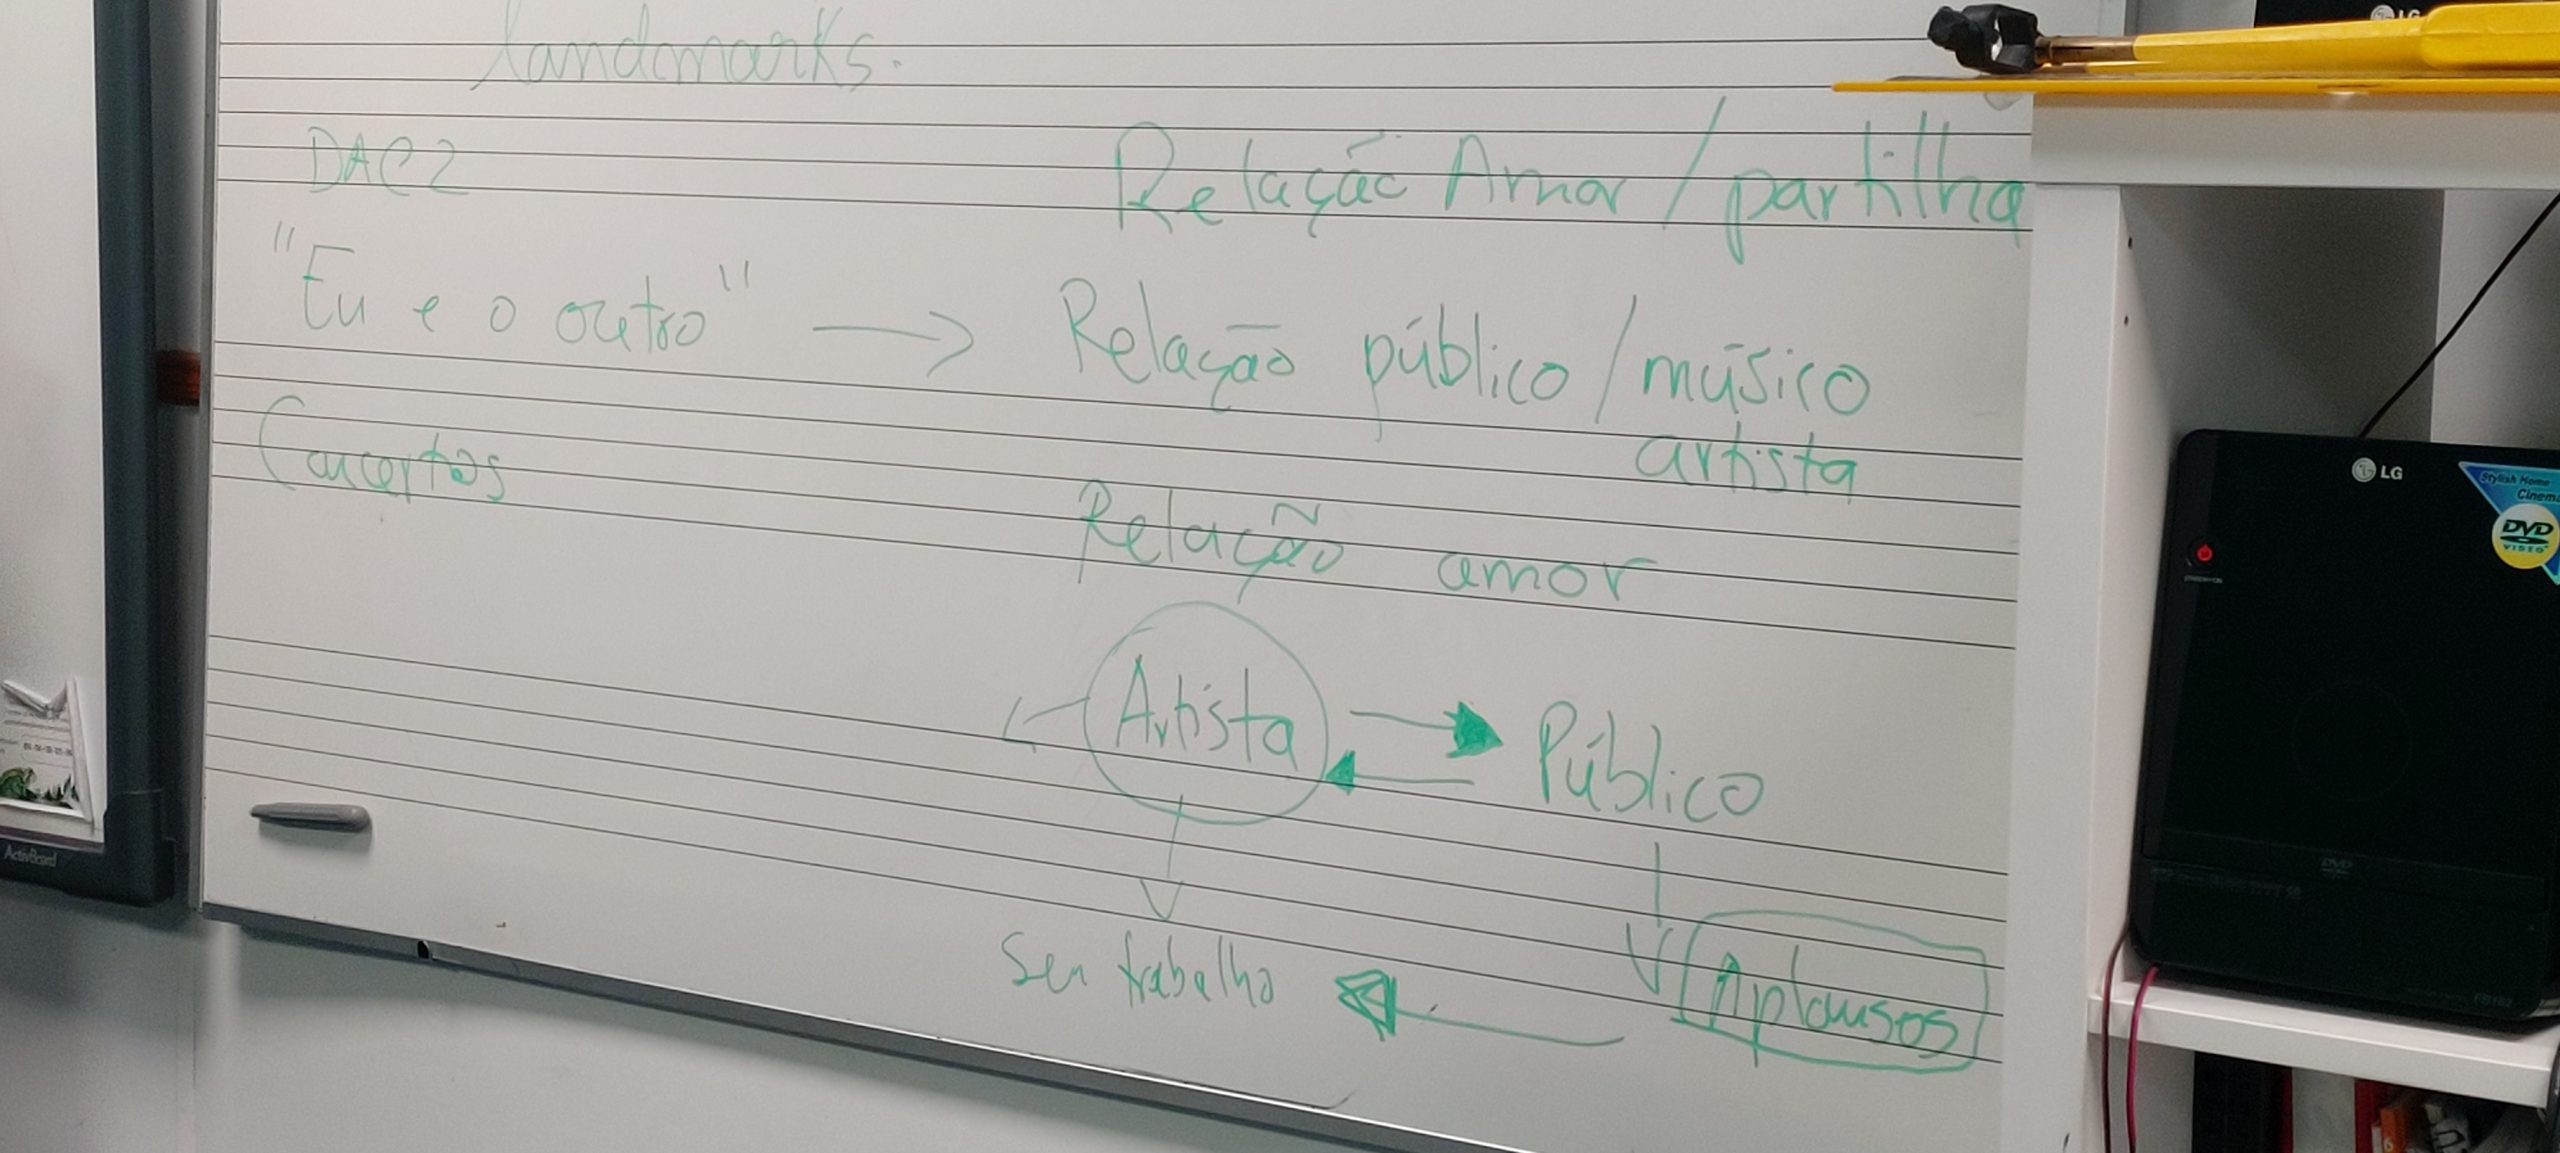 landmarks.
DAC 2
Relação Amor / partilha
"Eu e o outro" → Relação público / músico
artista
Concertos
Relação amor
Artista
Público
Seu trabalho
Aplausos
ActivBoard
LG
LG
Stylish Home
Cinema
DVD
VIDEO
DVD